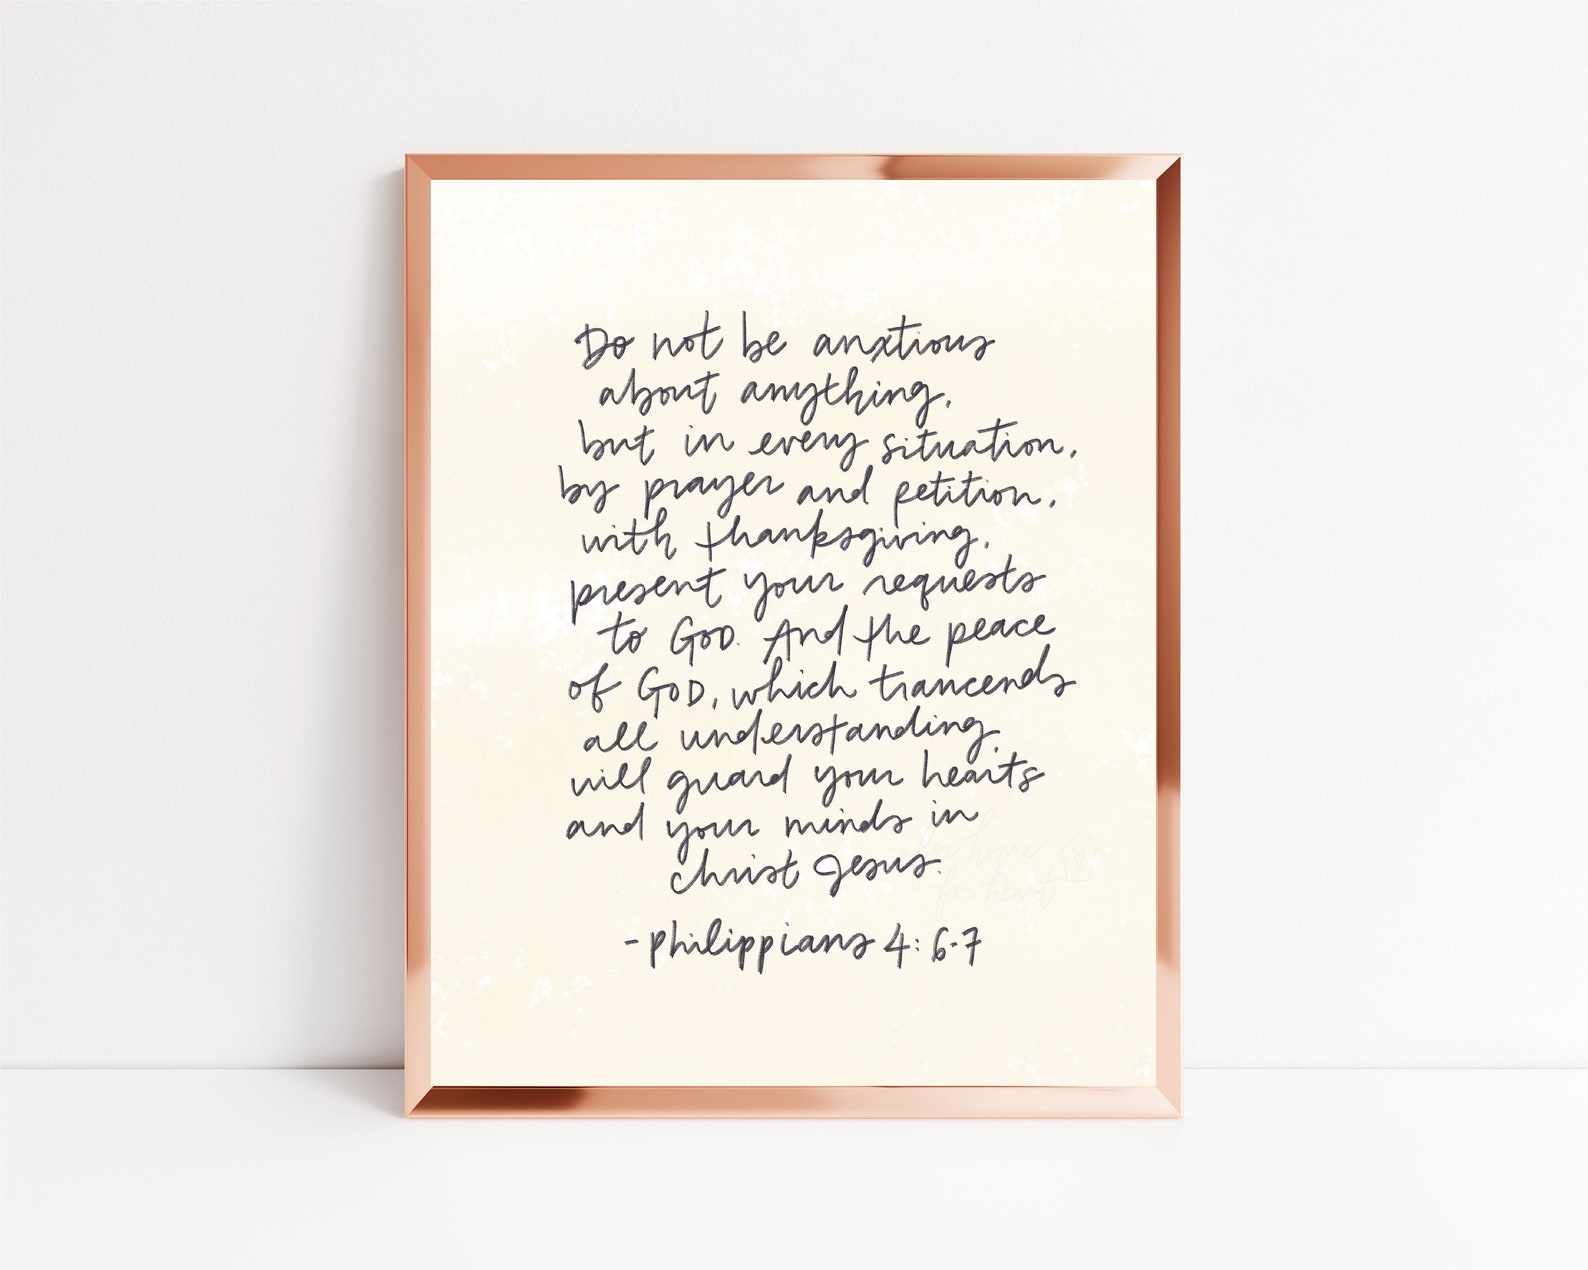 Do not be anxtious
about anything,
but in every situation,
by prayer and petition,
with thanksgiving,
present your requests
to GOD. And the peace
of GOD, which trancends
all understanding,
will guard your hearts
and your minds in
christ Jesus.
for home
for heart
- philippians 4:6-7